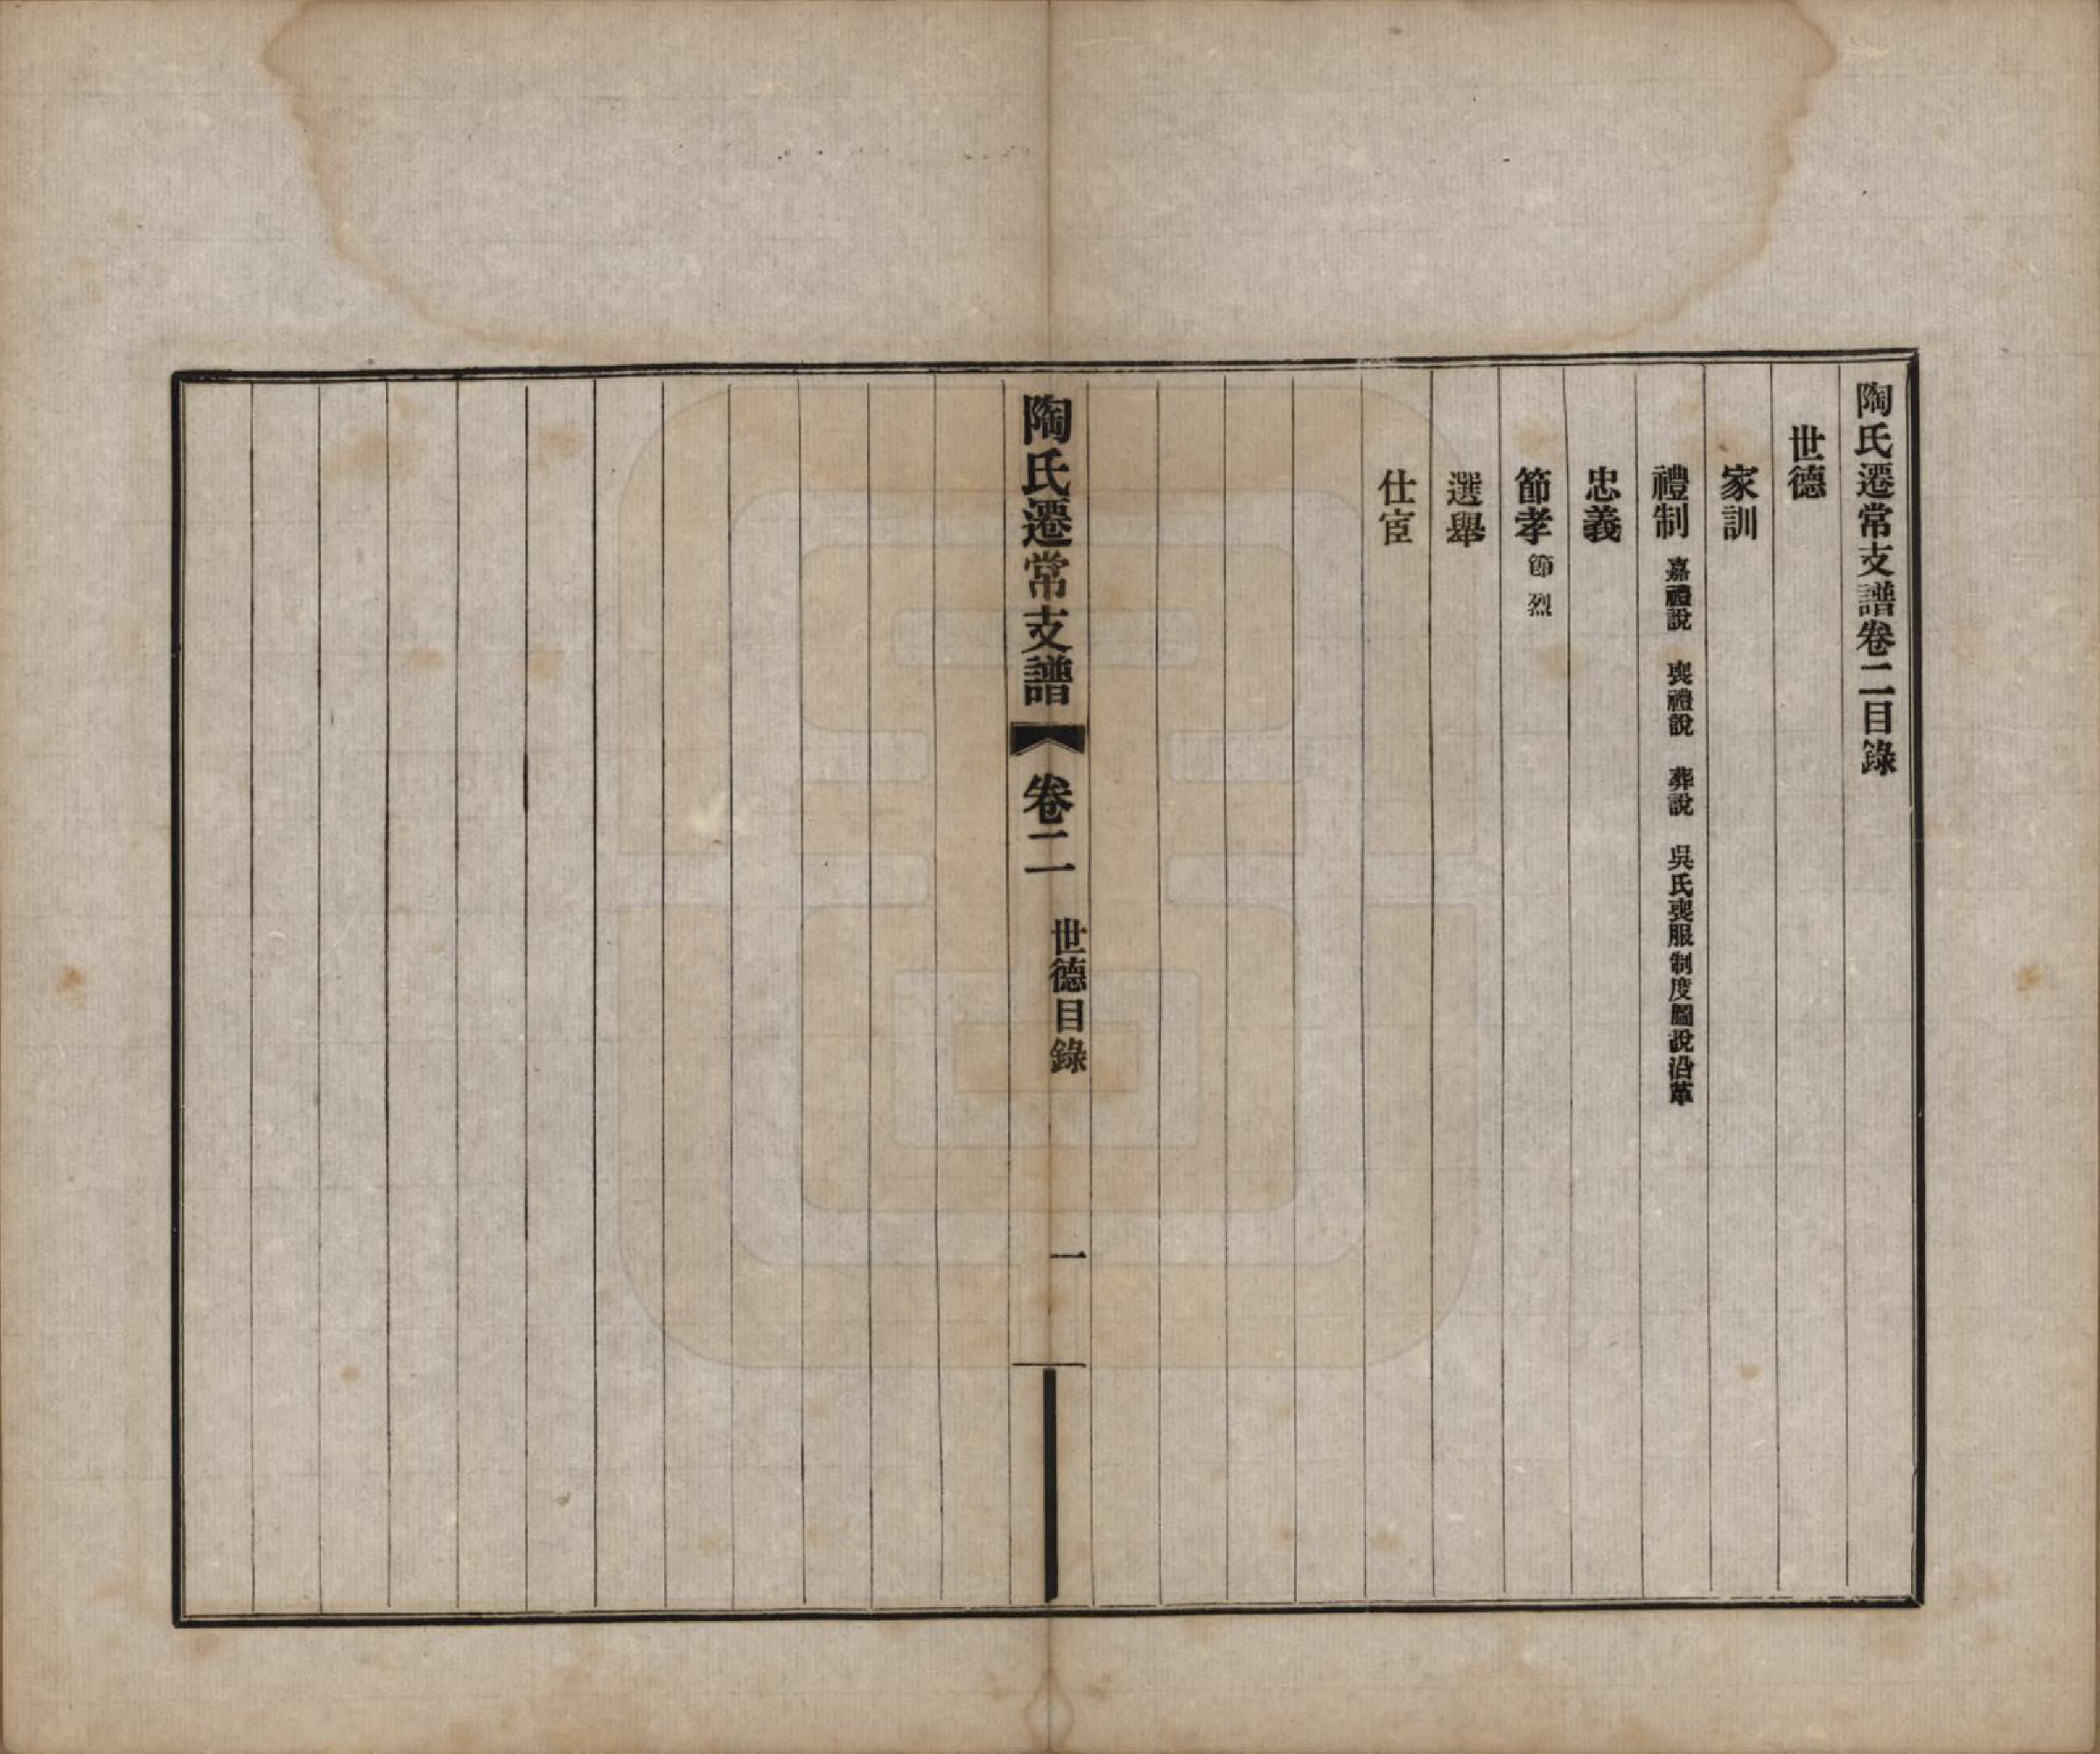 陶氏遷常支譜卷二目錄
世德
家訓
禮制 嘉禮說 喪禮說 葬說 吳氏喪服制度圖說沿革
忠義
節孝 節烈
選舉
仕宦
陶氏遷常支譜 卷二 世德目錄 一